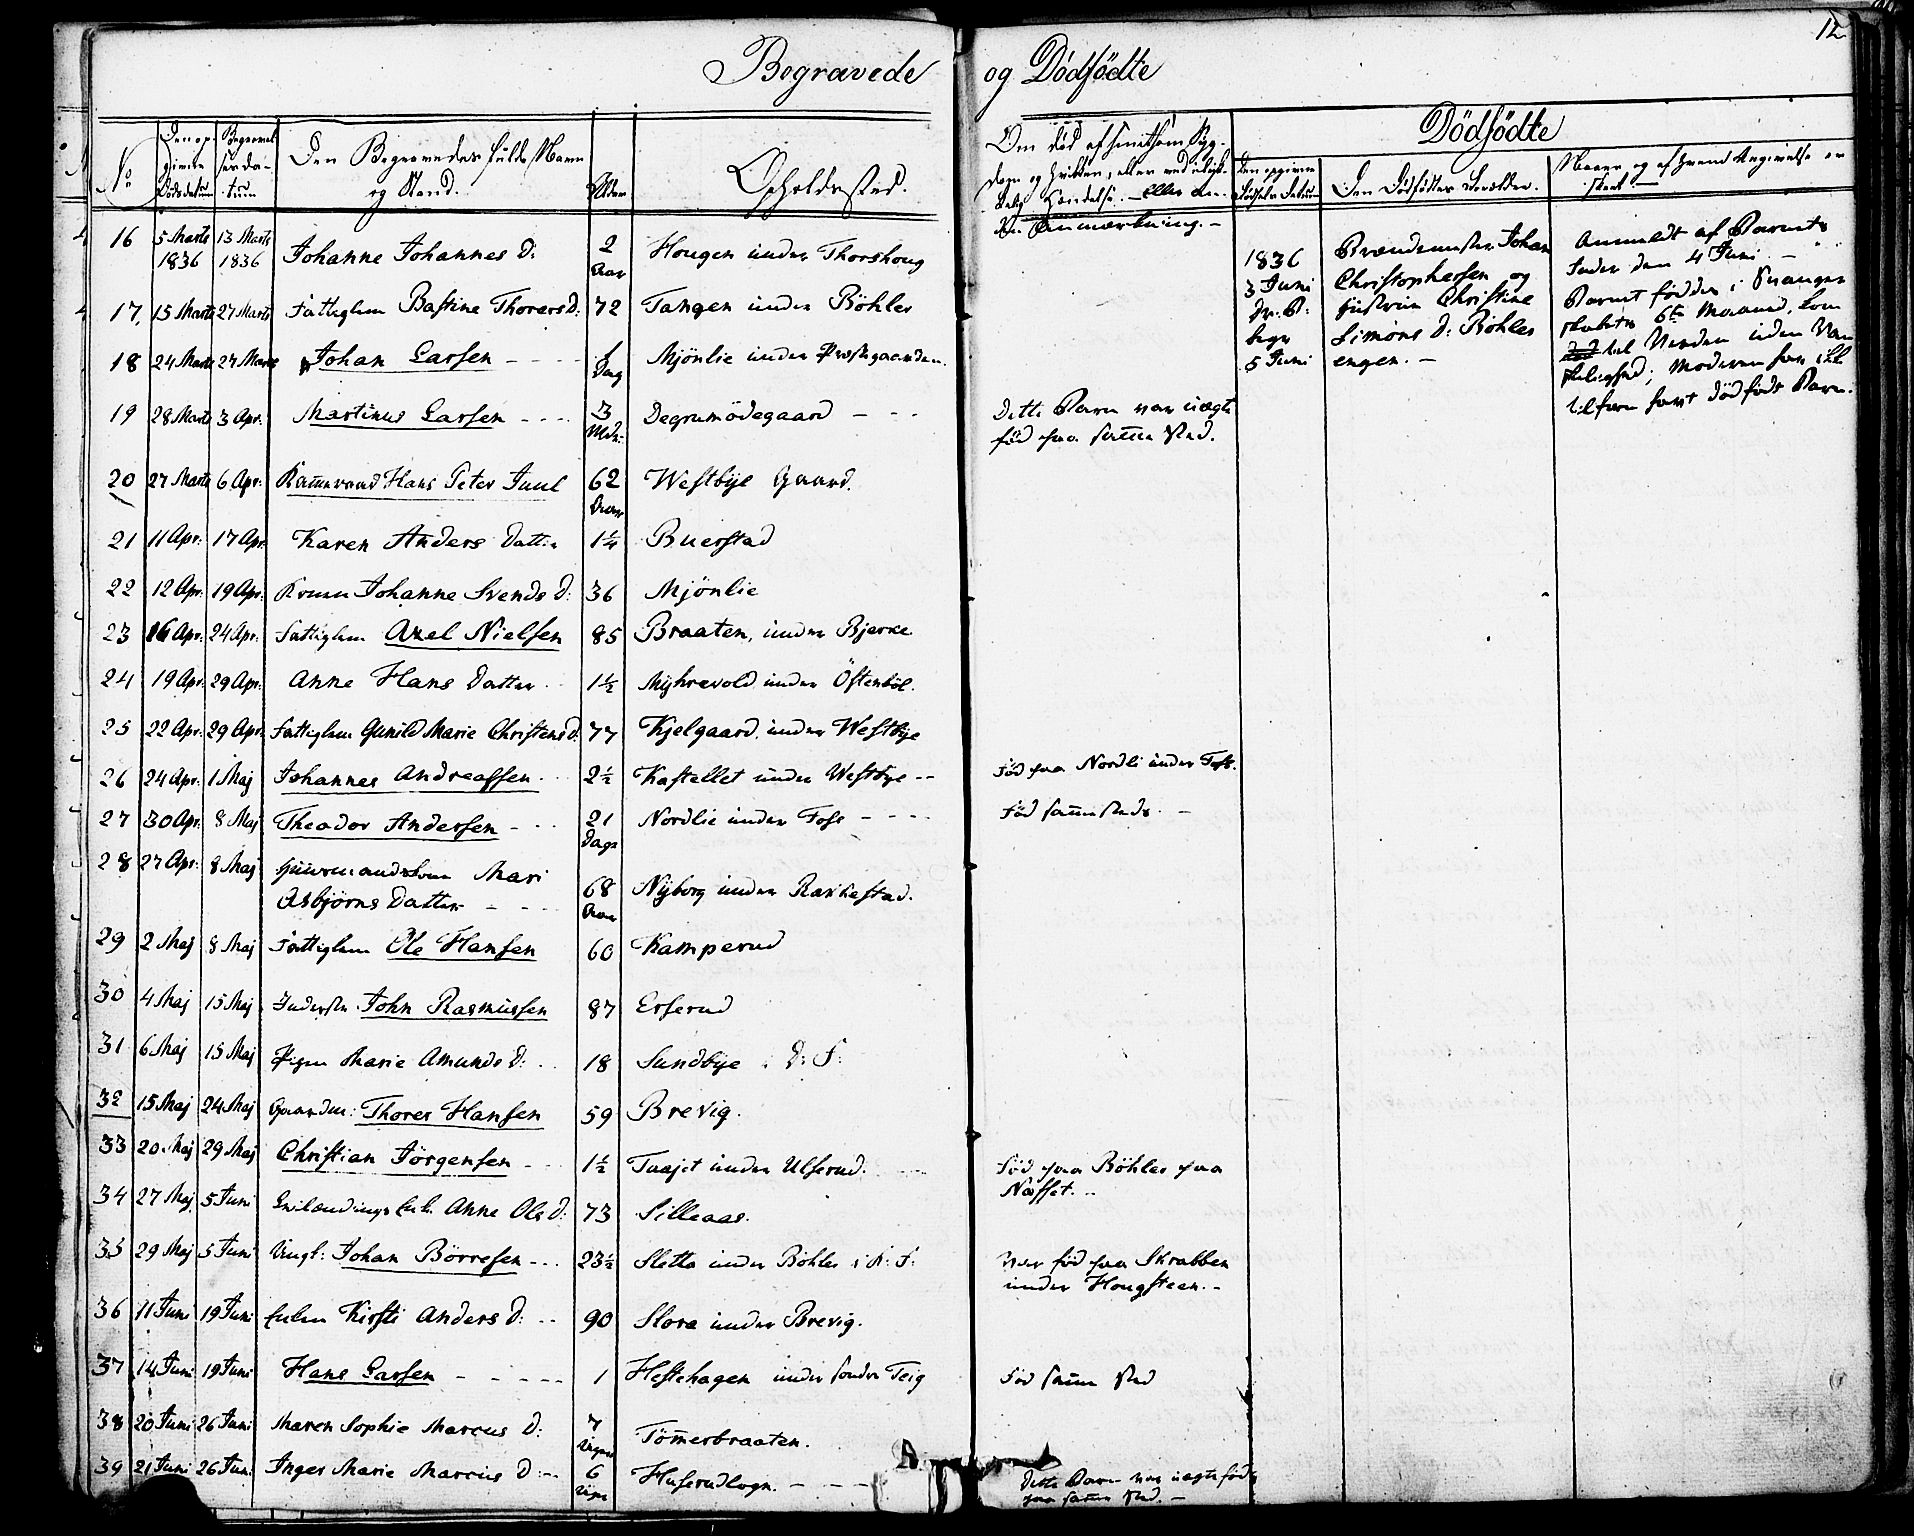 12
Begravede og Dødfödte
No
Den op-
givne
Dödsdatum
Begravel-
sesda-
tum
Den Begravedes fulde Navn
og Stand.
Alder
Opholdssted.
Om död af smitsom Syg-
dom og hvilken, eller ved ulyk-
kelig Hændelse. - Eller an-
den Anmærkning. -
Dødfödte
Den opgivne
Födsels Datum
Den Dödfödtes Forældre.
Naar og af hvem Angivelse er
skeet
16 5 Marts 1836 13 Marts 1836 Johanne Johannes D: 2 Aar Hougen under Thorshoug
17, 15 Marts 27 Marts Fattiglem Bastine Thorers D: 72 Tangen under Böhler
18 24 Marts 27 Marts Johan Larsen - - - - 1 Dag Mjönlie under Præstegaarden
19 28 Marts 3 Apr: Martinus Larsen - - - 3 Mdr: Degrumödegaard - - - Dette Barn var uægte
född paa samme Sted.
20 27 Marts 6 Apr: Kammerraad Hans Peter Juul 62 Aar Westbye Gaard.
21 11 Apr: 17 Apr: Karen Anders Datter 1¼ Buerstad
22 12 Apr: 19 Apr: Konen Johanne Svends D: 36 Mjönlie
23 16 Apr: 24 Apr: Fattiglem Axel Nielsen 85 Braaten, under Bjerke
24 19 Apr: 29 Apr: Anne Hans Datter 1½ Myhrevold under Östenböl.
25 22 Apr: 29 Apr: Fattiglem Gunild Marie Christens D. 77 Kjelgaard under Westbye
26 24 Apr: 1 Maj Johannes Andreassen 2½ Kastellet under Westbye -- Föd paa Nordli under Foss.
27 30 Apr: 8 Maj Theodor Andersen - - - 21 Dage Nordlie under Foss - - - - Föd samme Sted. -
28 27 Apr: 8 Maj Huusmandskone Mari
Asbjörns Datter - - - 68 Aar Nyborg under Raskestad.
29 2 Maj 8 Maj Fattiglem Ole Hansen 60 Kamperud
30 4 Maj 15 Maj Inderste John Rasmussen 87 Erserud
31 6 Maj 15 Maj Pigen Marie Amunds D: 18 Sundbye i D: S:
32 15 Maj 24 Maj Gaardm: Thorer Hansen 59 Brevig.
33 20 Maj 29 Maj Christian Jörgensen - - 1½ Taajet under Ulserud. Föd paa Böhler paa
Næsset. -
34 27 Maj 5 Juni Anne Ols D: 73 Silleaas.
35 29 Maj 5 Juni Ungk: Johan Börresen - - - 23½ Sletta under Böhler i K: S: Var föd paa Skrabben
under Hougsteen. -
36 11 Juni 19 Juni Enken Kirsti Anders D: - - 90 Slora under Brevig.
37 14 Juni 19 Juni Hans Larsen - - - - - 1 Hestehagen under söndre Teig Föd samme Sted
38 20 Juni 26 Juni Maren Sophie Marcus D: 7 Uger Tömmerbraaten.
39 21 Juni 26 Juni Inger Marie Marcus D: - - 6 Uger Huserudlogn. - - - Dette Barn var uægte född
paa samme Sted. -
1836
3 Juni
5 Juni
Brændemester Johan
Christophersen og
Hustrue Christine
Simons D: Böhler
engen. -
Anmeldt af Barnets
Fader den 4 Juni -
Barnet födtes i Svanger
skabets 6te Maaned, kom
död til Verden uden
Moderen har ikke
tilforn havt dödfödt Barn.